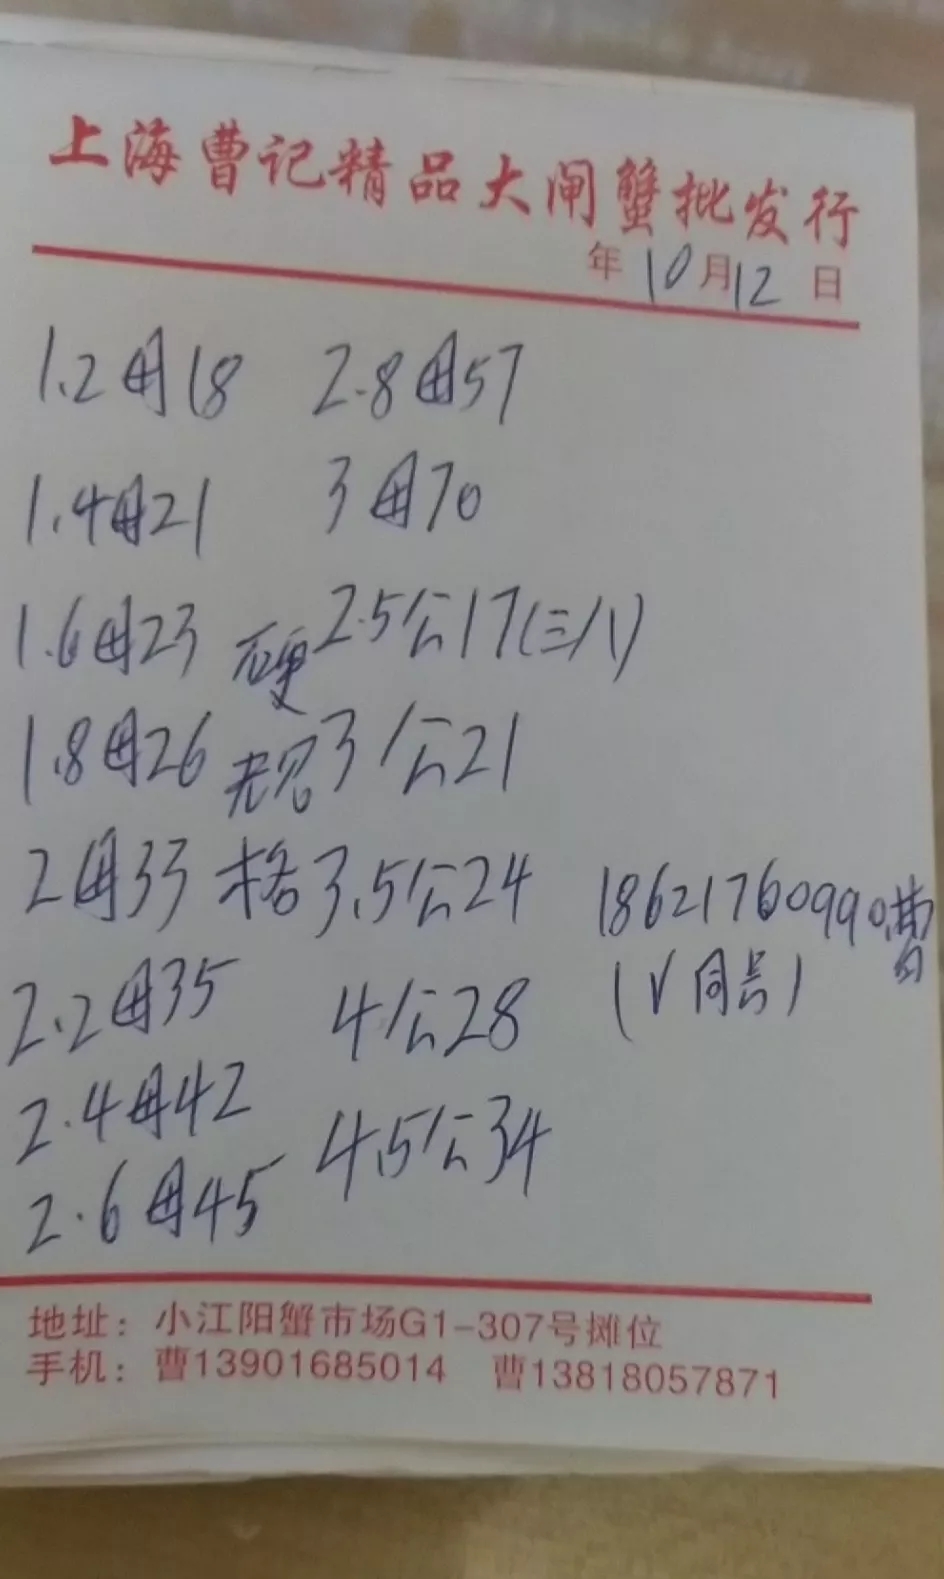 上海曹记精品大闸蟹批发行
年10月12日
1.2母18 2.8母57
1.4母21 3母70
1.6母23 硬 2.5公17(三八)
1.8母26 规 3公21
2母33 格 3.5公24 18621760990曹
2.2母35 4公28 (V同号)
2.4母42 4.5公34
2.6母45
地址：小江阳蟹市场G1-307号摊位
手机：曹13901685014 曹13818057871